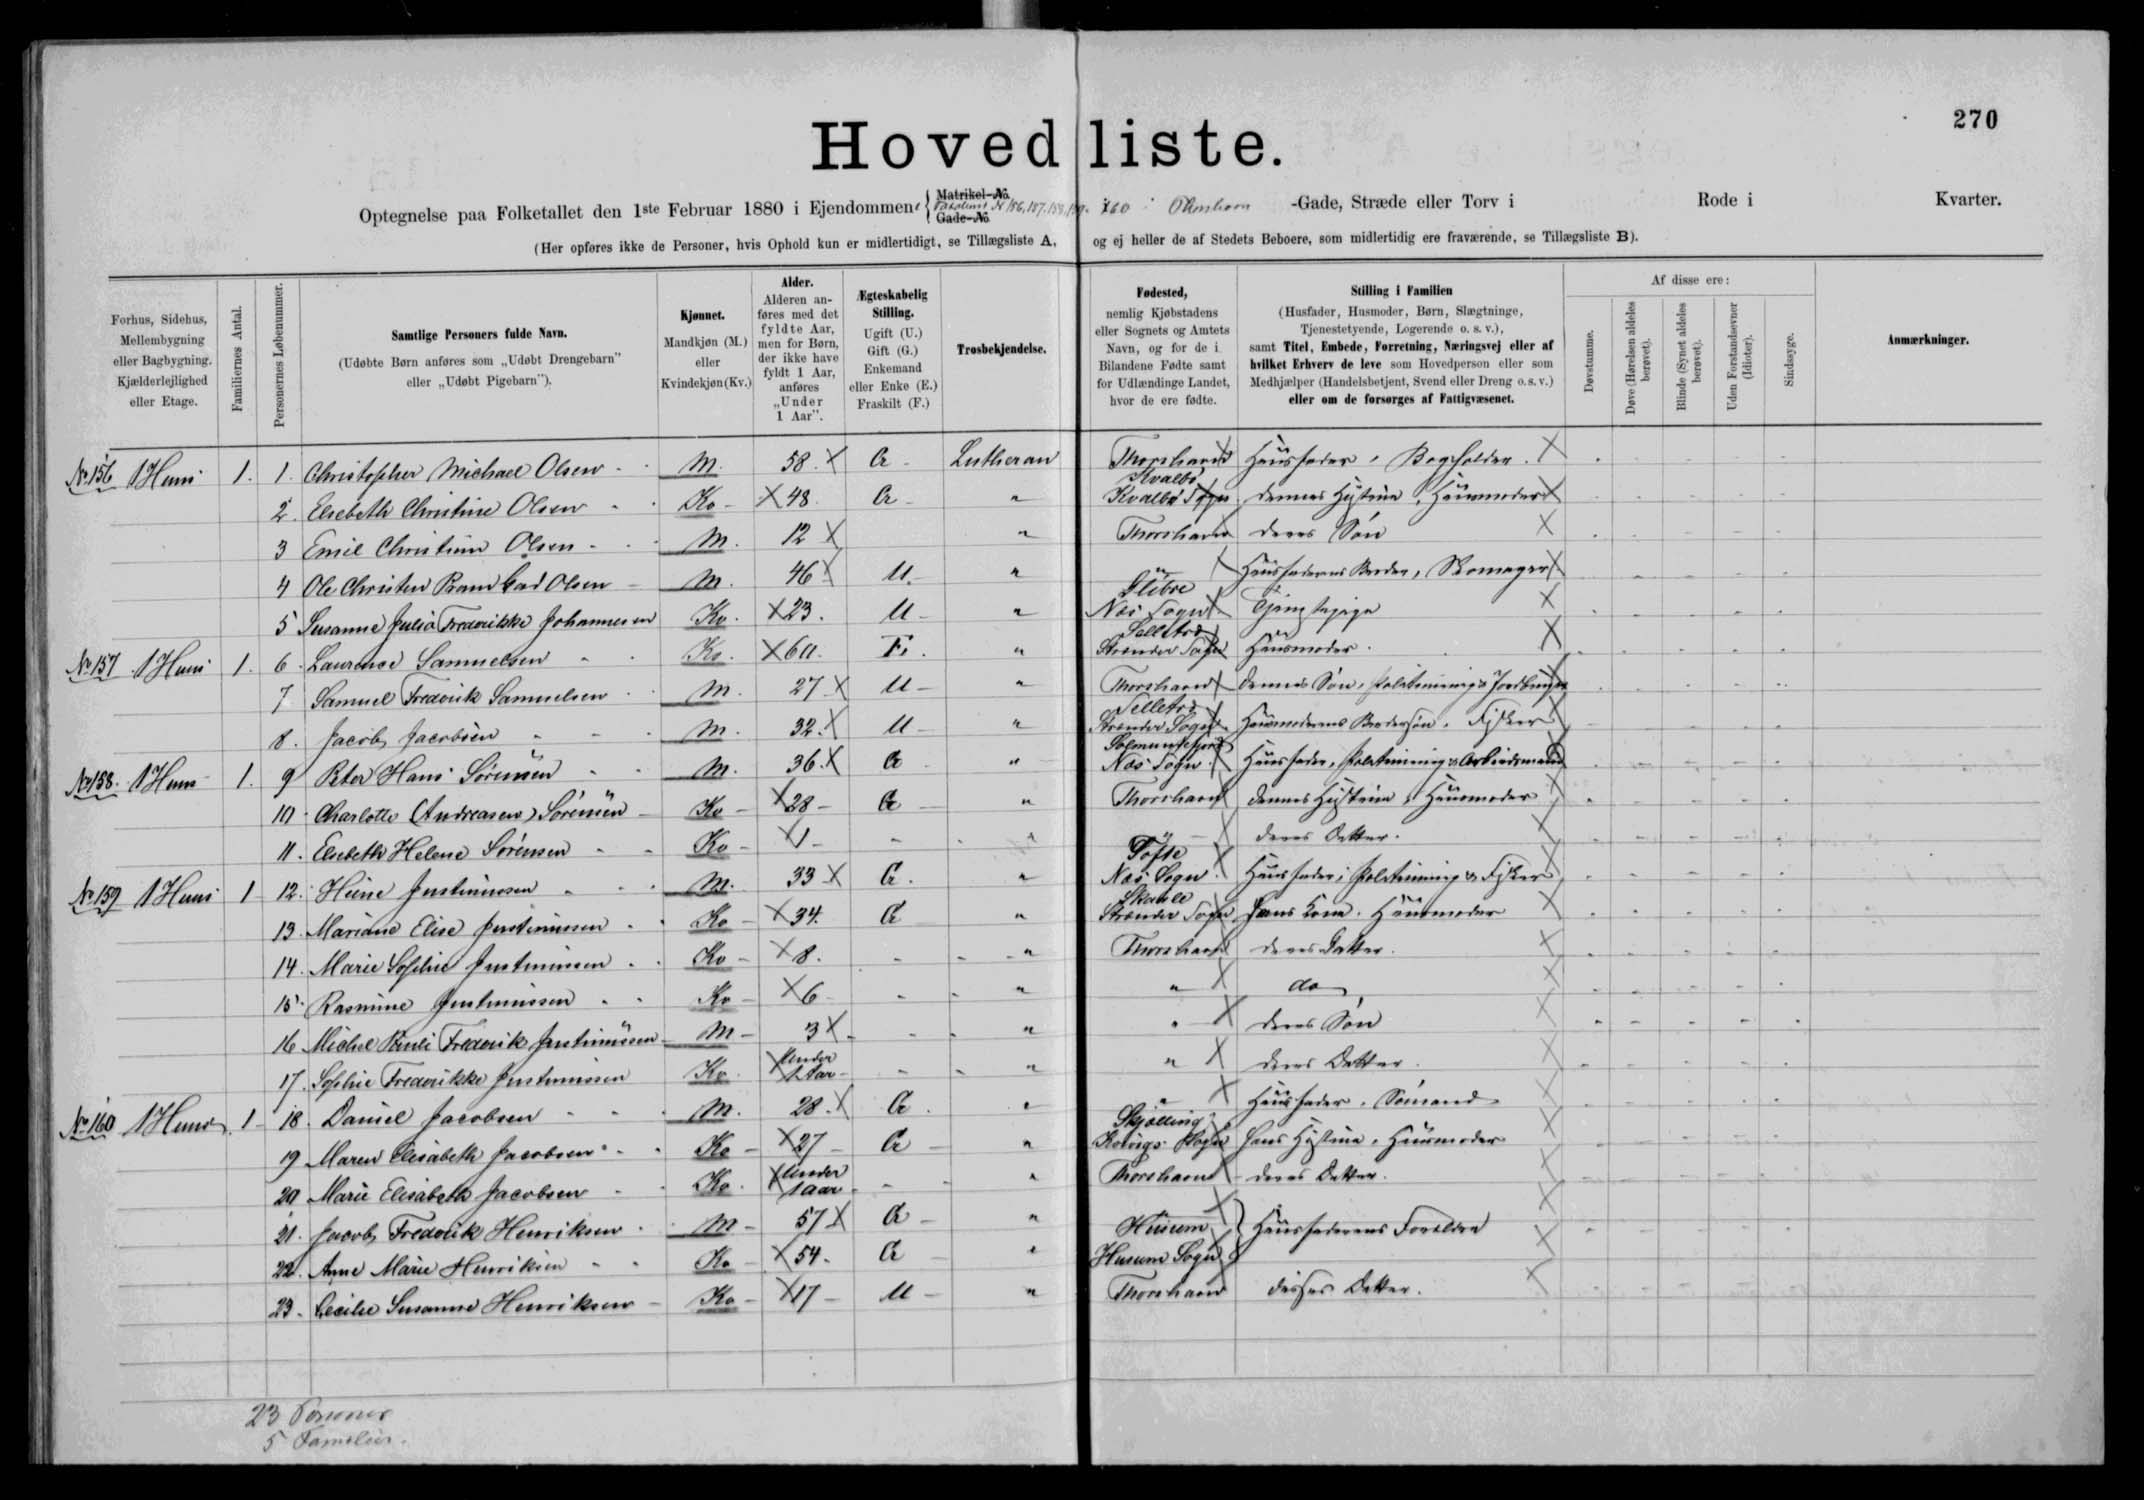 270
Hovedliste.
Optegnelse paa Folketallet den 1ste Februar 1880 i Ejendommene { Matrikel-No. 156, 157, 158, 159. 160 i Thorshavn -Gade, Stræde eller Torv i Rode i Kvarter.
Gade-No.
(Her opføres ikke de Personer, hvis Ophold kun er midlertidigt, se Tillægsliste A, og ej heller de af Stedets Beboere, som midlertidig ere fraværende, se Tillægsliste B).
Forhus, Sidehus, Mellembygning eller Bagbygning. Kjælderlejlighed eller Etage.
Familiernes Antal.
Personernes Løbenummer.
Samtlige Personers fulde Navn.
(Udøbte Børn anføres som „Udøbt Drengebarn” eller „Udøbt Pigebarn”).
Kjønnet.
Mandkjøn (M.) eller Kvindekjøn (Kv.)
Alder.
Alderen anføres med det fyldte Aar, men for Børn, der ikke have fyldt 1 Aar, anføres „Under 1 Aar”.
Ægteskabelig Stilling.
Ugift (U.) Gift (G.) Enkemand eller Enke (E.) Fraskilt (F.)
Trosbekjendelse.
Fødested,
nemlig Kjøbstadens eller Sognets og Amtets Navn, og for de i Bilandene Fødte samt for Udlændinge Landet, hvor de ere fødte.
Stilling i Familien
(Husfader, Husmoder, Børn, Slægtninge, Tjenestetyende, Logerende o. s. v.),
samt Titel, Embede, Forretning, Næringsvej eller af hvilket Erhverv de leve som Hovedperson eller som Medhjælper (Handelsbetjent, Svend eller Dreng o. s. v.)
eller om de forsørges af Fattigvæsenet.
Af disse ere:
Døvstumme.
Døve (Hørelsen aldeles berøvet).
Blinde (Synet aldeles berøvet).
Uden Forstandsevner (Idioter).
Sindssyge.
Anmærkninger.
No 156 1 Huus 1. 1. Christopher Michael Olsen M. 58. X G Lutheran Thorshavn Huusfader, Bogholder. X
2. Elsebeth Christine Olsen Kv X 48. G " Kvalbø Kvalbø Sogn dennes Hustrue, Huusmoder X
3 Emil Christian Olsen M. 12 X " Thorshavn deres Søn X
4 Ole Christen Olsen M. 46 X U. " " Huusfaderens Broder, Skomager X
5 Susanne Julia Frederikke Johannesen Kv. X 23. U " Glibre Næs Sogn Tjenestepige X
No 157 1 Huus 1. 6. Laurence Samuelsen Kv. X 60. E. " Selletræ Strænder Sogn Huusmoder. X
7 Samuel Frederik Samuelsen M. 27 X U " Thorshavn dennes Søn, X
8. Jacob Jacobsen M. 32. X U " Selletræ Strænder Sogn Huusmoderens Brodersøn, Fisker X
No 158. 1 Huus 1. 9 Peter Hans Sørensen M. 36. X G " Solmundefjord Næs Sogn Huusfader, Arbeidsmand
10 Charlotte (Andreasen) Sørensen Kv X 28 G " Thorshavn dennes Hustrue, Huusmoder X
11. Elsebeth Helene Sørensen Kv X 1 " " X deres Datter. X
No 159 1 Huus 1 12. Heine Justinussen M. 33 X G. " Tofte Næs Sogn Huusfader, Fisker X
13. Mariane Elise Justinussen Kv X 34. G " Skaale Strænder Sogn Hans Kone, Huusmoder X
14. Marie Sophie Justinussen Kv X 8. " Thorshavn deres Datter. X
15. Rasmine Justinussen Kv X 6 " " X do X
16 Michel Pauli Frederik Justinussen M 3 X " " X deres Søn X
17. Sophie Frederikke Justinussen Kv. X Under 1 Aar " " X deres Datter. X
No 160 1 Huus 1 18. Daniel Jacobsen M. 28. X G. " " X Huusfader, Sømand X
19 Maren Elisabeth Jacobsen Kv X 27 G " Skjælling Sogn hans Hustrue, Huusmoder X
20 Marie Elisabeth Jacobsen Kv. X Under 1 aar " Thorshavn deres Datter. X
21. Jacob Frederik Henriksen M 57 X G " Husum } Huusfaderens Forældre X
22. Anne Marie Henriksen Kv X 54. G " Husum Sogn X
23. Cecilie Susanne Henriksen Kv X 17 U " Thorshavn disses Datter. X
23 Personer
5 Familier.